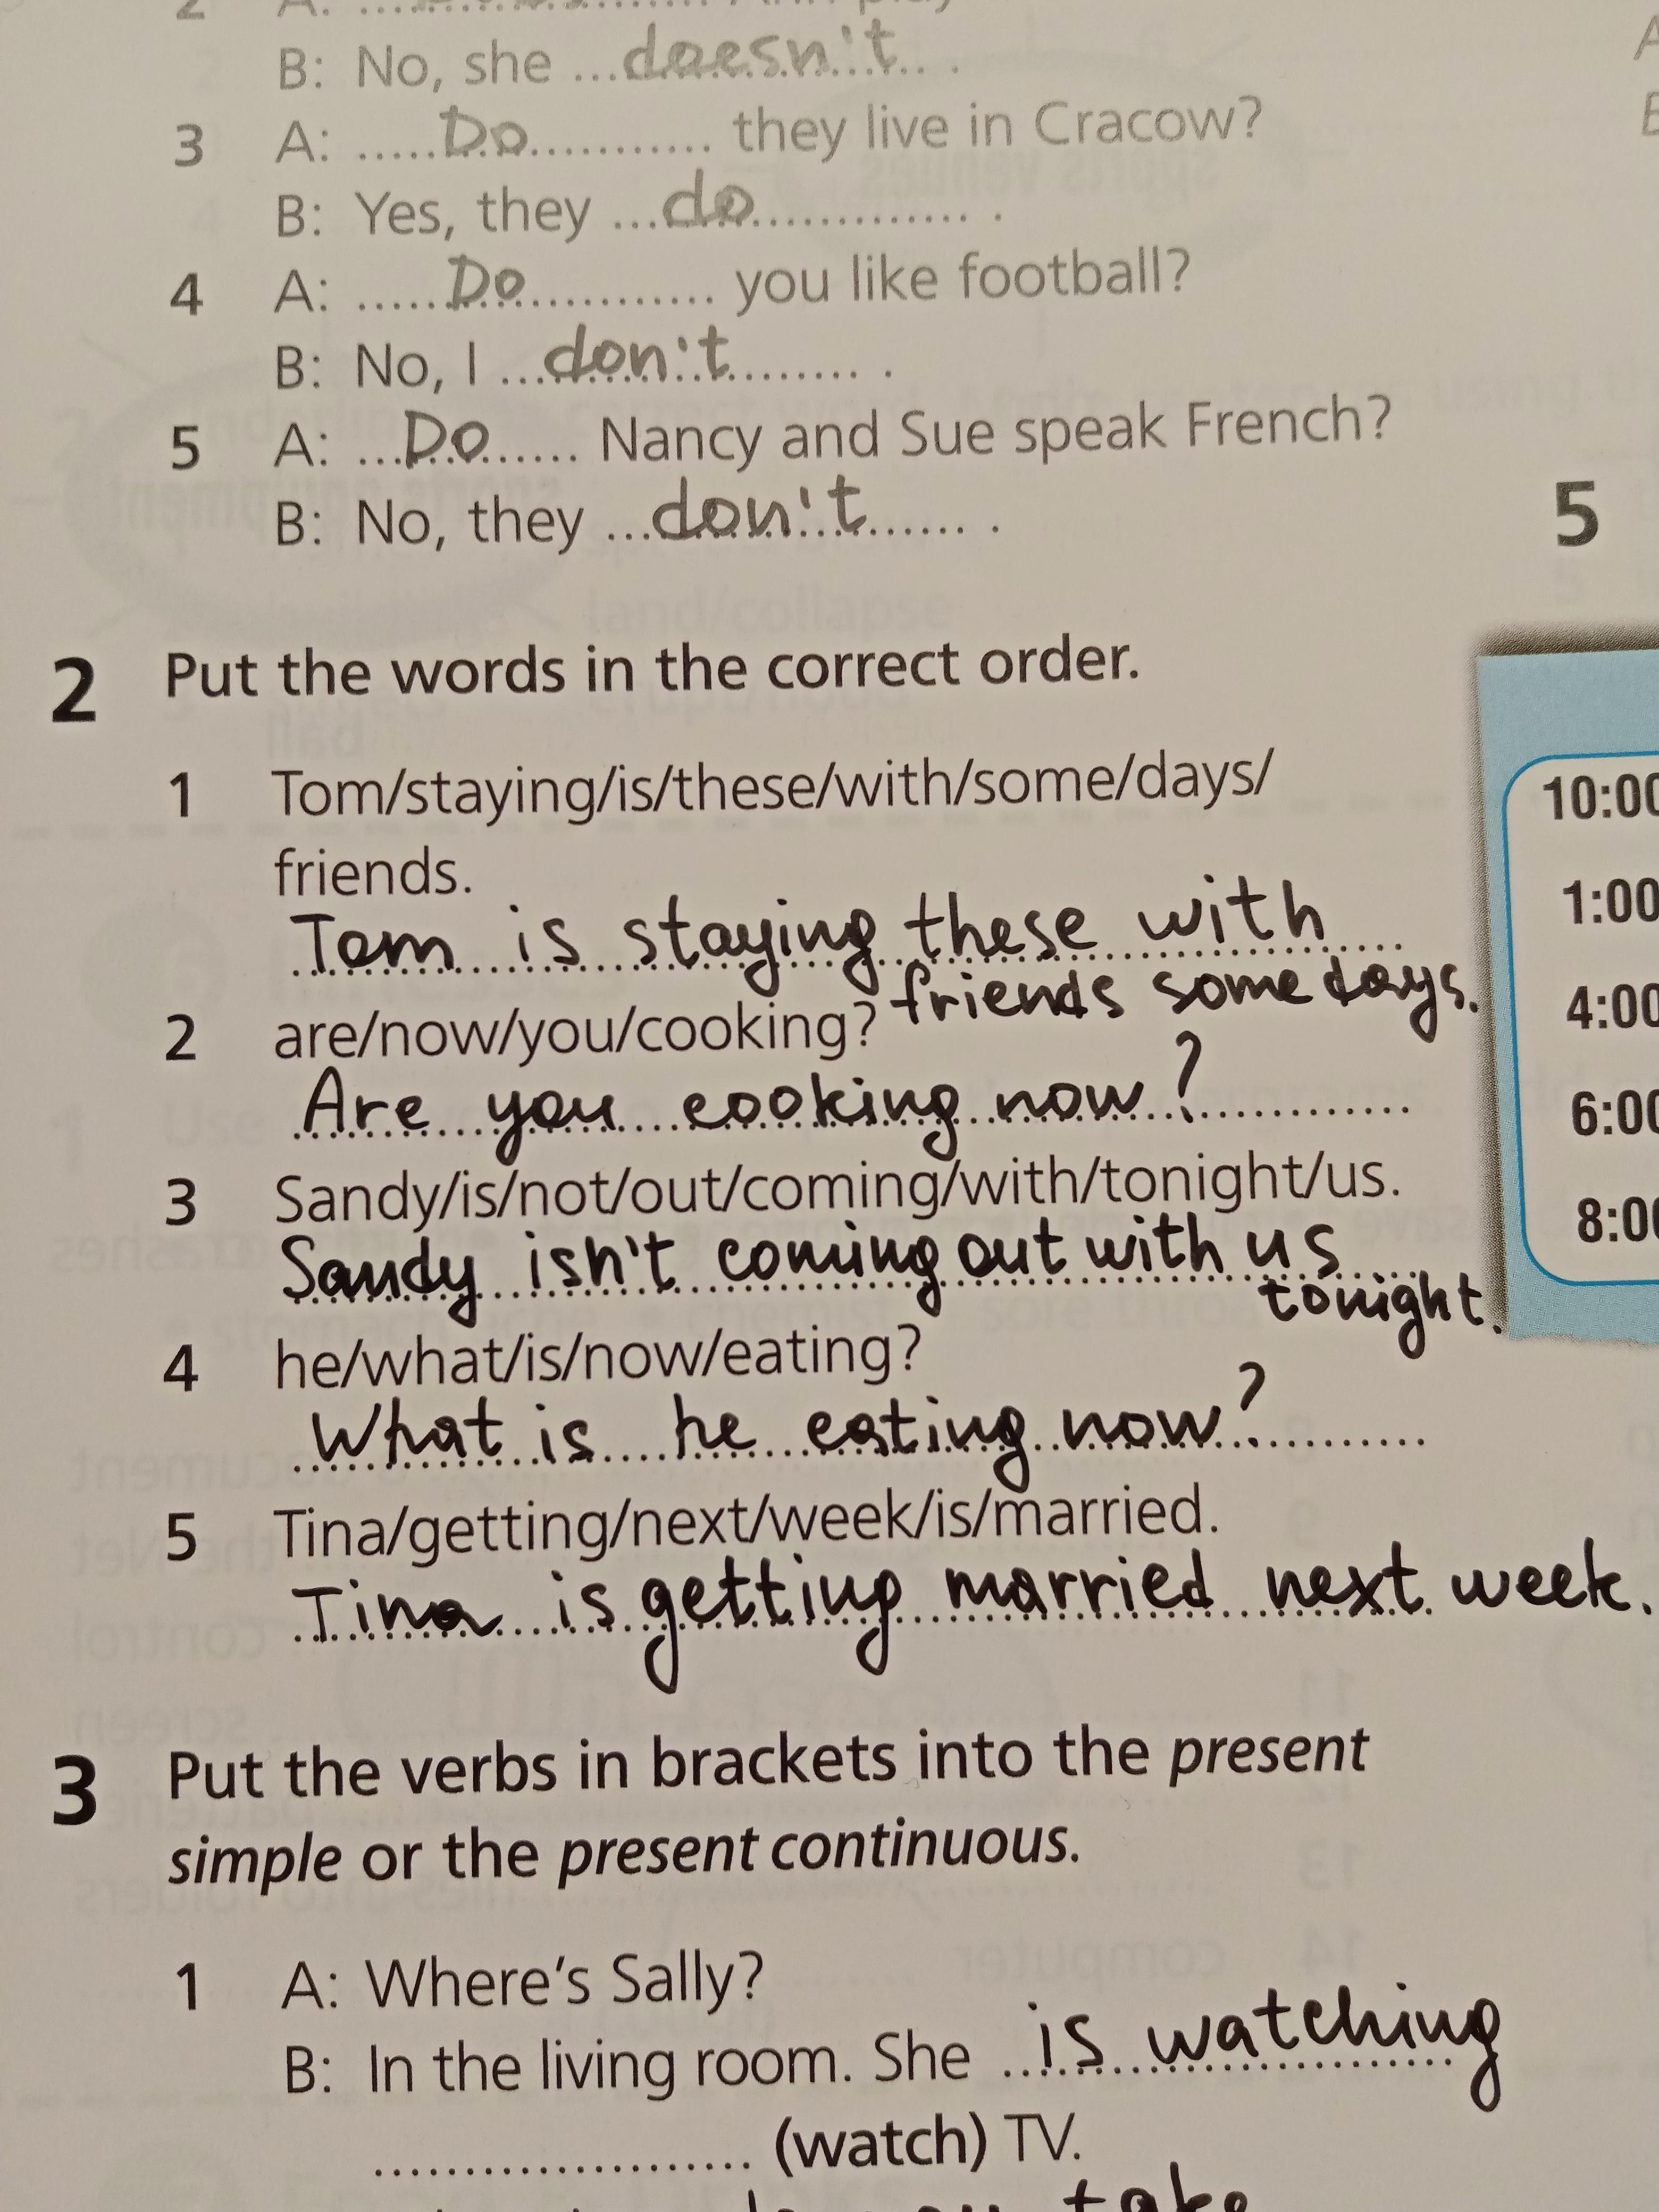 B: No, she ...doesn't... .
3 A: .....Do............ they live in Cracow?
B: Yes, they ...do.............. .
4 A: .....Do............. you like football?
B: No, I ...don't........ .
5 A: ...Do...... Nancy and Sue speak French?
B: No, they ...don't...... .
5
2 Put the words in the correct order.
1 Tom/staying/is/these/with/some/days/
friends.
Tom is staying these with
friends some days.
2 are/now/you/cooking?
Are you cooking now?
3 Sandy/is/not/out/coming/with/tonight/us.
Sandy isn't coming out with us
tonight.
4 he/what/is/now/eating?
What is he eating now?
5 Tina/getting/next/week/is/married.
Tina is getting married next week.
3 Put the verbs in brackets into the present
simple or the present continuous.
1 A: Where's Sally?
B: In the living room. She ...is watching
..................... (watch) TV.
take
10:00
1:00
4:00
6:00
8:00